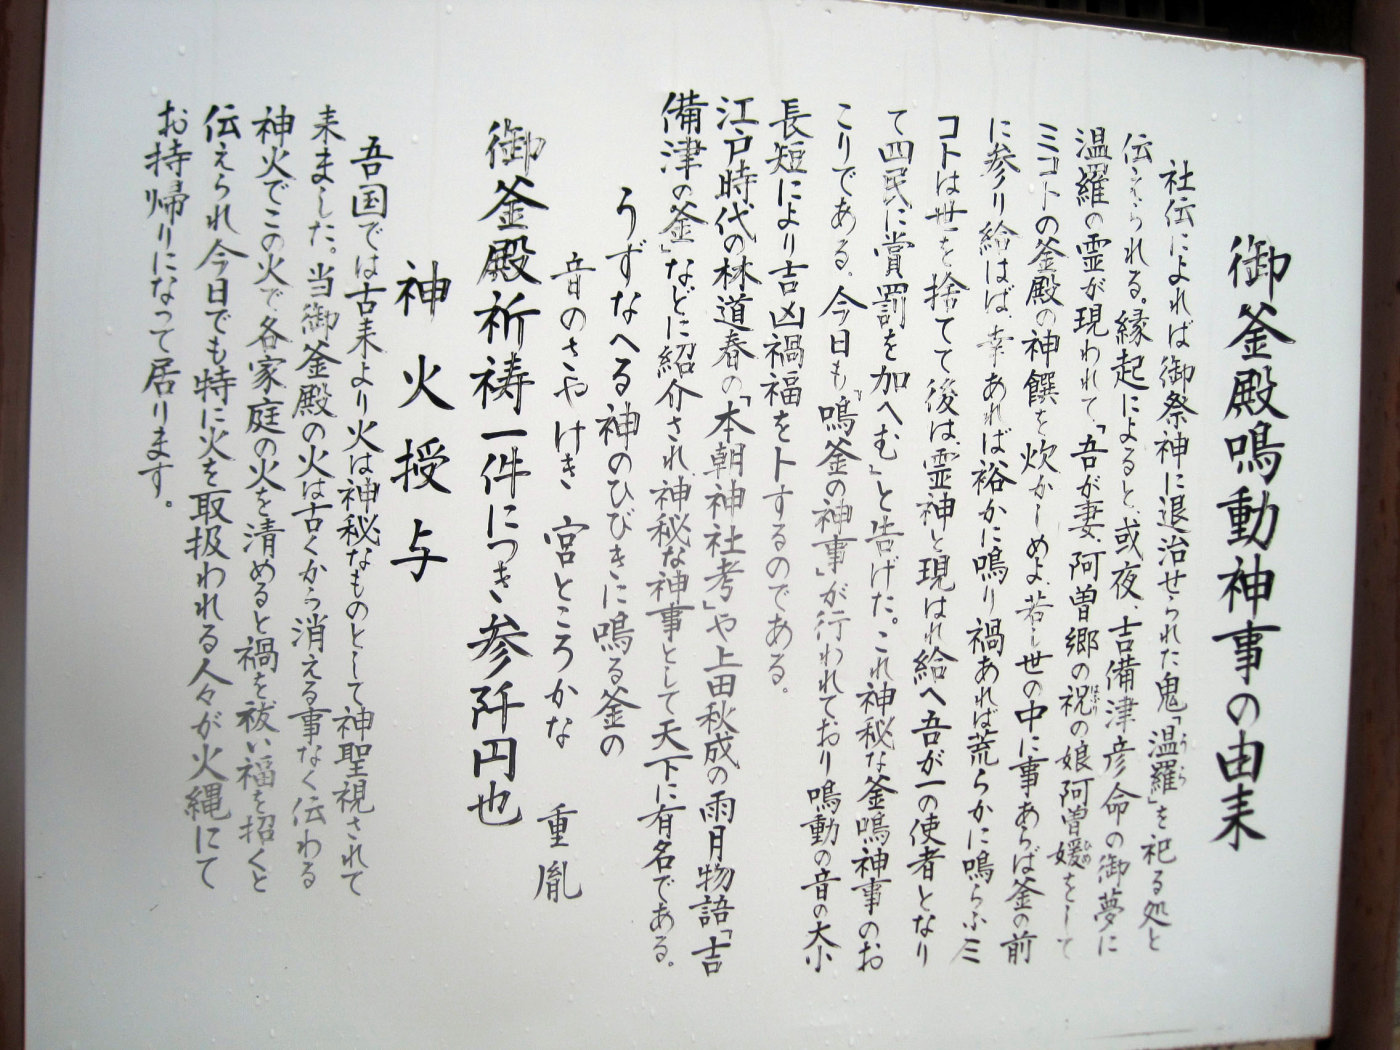 御釜殿鳴動神事の由来
社伝によれば御祭神に退治せられた鬼「温羅」を祀る処と
うら
伝えられる。縁起によると、或夜、吉備津彦命の御夢に
温羅の霊が現われて、「吾が妻、阿曽郷の祝の娘阿曽媛をして
ほふり
ひめ
ミコトの釜殿の神饌を炊かしめよ、若し世の中に事あらば釜の前
に参り給はば、幸あれば裕かに鳴り禍あれば荒らかに鳴らふミ
コトは世を捨てて後は、霊神と現はれ給へ吾が一の使者となり
て四民に賞罰を加へむ」と告げた。これ神秘な釜鳴神事のお
こりである。今日も「鳴釜の神事」が行われており鳴動の音の大小
長短により吉凶禍福を卜するのである。
江戸時代の林道春の「本朝神社考」や上田秋成の雨月物語「吉
備津の釜」などに紹介され、神秘な神事として天下に有名である。
うずなへる神のひびきに鳴る釜の
音のさやけき宮ところかな 重胤
御釜殿祈祷一件につき参阡円也
神火授与
吾国では古来より火は神秘なものとして神聖視されて
来ました。当御釜殿の火は古くから消える事なく伝わる
神火でこの火で各家庭の火を清めると禍を祓い福を招くと
伝えられ今日でも特に火を取扱われる人々が火縄にて
お持帰りになって居ります。